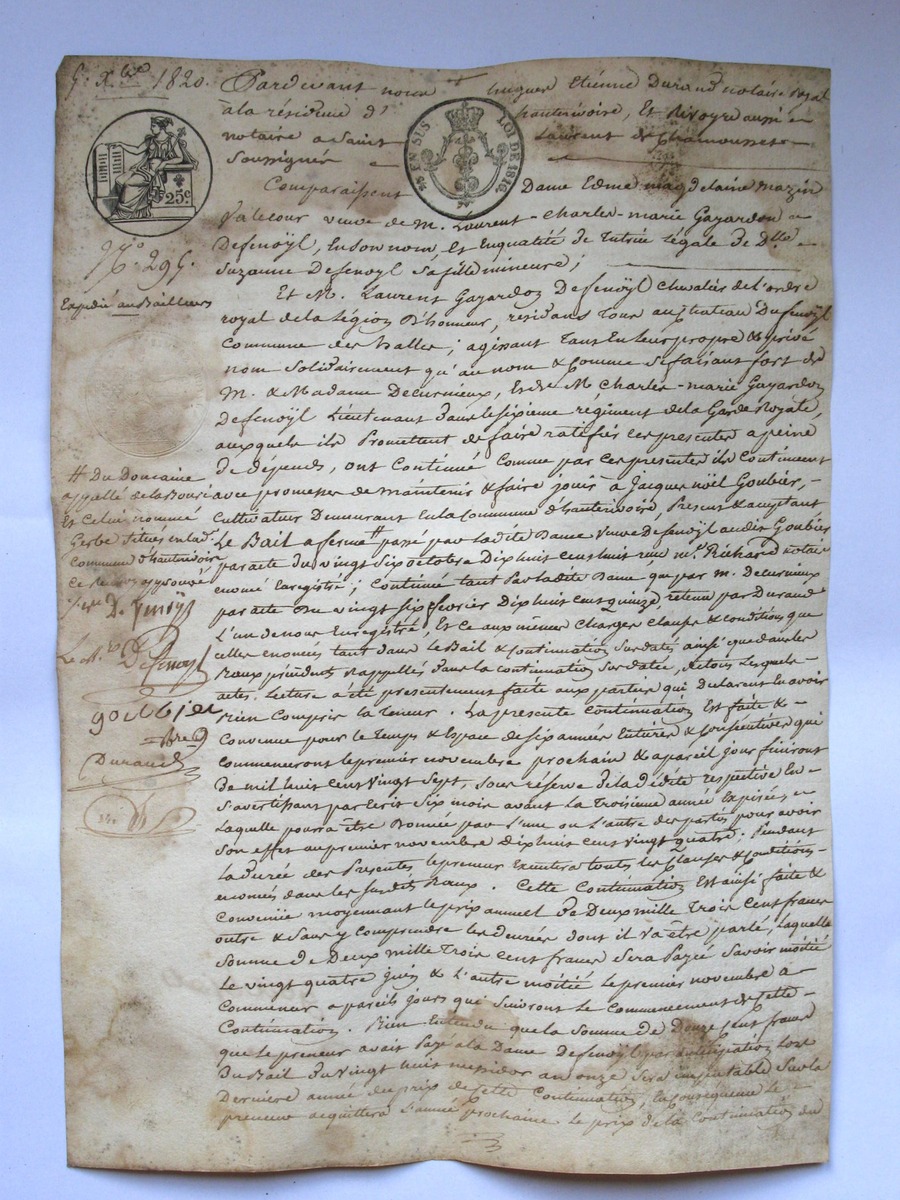 5. Xbre 1820.
25c
EN SUS LOI DE 1816.
N.o 295.
Expédié au Bailleurs
# Du Domaine
appellé de la
Et Celui nommé
Gerbe Situés en lad.
Commune d'hauterivoire
Ce Renvoy approuvé
D. fenoÿl
DeFenoyl
goubier
Durand
Pardevant nous hugues Etiénne Durand notaire royal
à la résidence d' hauterivoire, Et Rivoyre aussi
notaire a Saint Laurent de Chamousset
Soussignés
Comparaissent Dame Edme magdelaine mazin
Valecour veuve de M. Laurent-Charles-marie Gayardon
Defenoÿl, En Son nom, Et En qualité de Tutrice Légale de Dlle
Suzanne Defenoyl Sa fille mineure;
Et M. Laurent Gayardon Defenoÿl Chevalier de L'ordre
royal de la Légion D'honneur, résidans Tous au Chateau Du fenoyl
Commune des halles; agissant Tant En leur propre & privé
nom Solidairement qu'au nom & Comme Se faisant fort de
M. & Madame Decurnieux, Et de M. Charles-marie Gayardon
Defenoÿl Lieutenant Dans le Sixieme régiment de la Garde Royale,
auxquels ils Promettent de faire ratifier ces presentes a peine
de dépends, ont Continué Comme par Ces presentes ils Continuent
avec promesses de maintenir & faire jouir à Jacques nöel Goubier,
Cultivateur Demeurant En la Commune d'hauterivoire, Present & acceptant
Le Bail a ferme # passé par ladite Dame Veuve Defenoÿl audit Goubier
par acte du vingt Six octobre Dix huit Cent huit reçu me Richard notaire
Enoncé Enregistré; Continué tant Par ladite Dame que par M. Decurnieux
par acte Du vingt Six février Dix huit Cent quinze, retenu par Durand
L'un de nous Enregistré, Et Ce aux mêmes Charges Clauses & Conditions que
celles enoncés tant dans Le Bail & Continuation Susdatés ainsi que dans les
Baux précédents Rappellés dans la Continuation Susdatée, De tous lesquels
actes, Lecture a été presentement faite aux parties qui Declarent En avoir
Bien Compris la Teneur. La presente Continuation Est faite &
Convenue pour le Temps & Espace de Six années Entieres & Consecutives qui
Commenceront le premier novembre prochain & a pareil jour finiront
De mil huit Cent Vingt Sept, Sous réserve de la Dédite respective En
S'avertissant par Ecrit Six mois avant La Troisième année Expirée,
Laquelle pourra être Donnée par L'une ou L'autre des parties pour avoir
Son effet au premier novembre Dix huit Cent Vingt quatre. Pendant
La Durée des Presentes le preneur Executera toutes les Clauses & Conditions
enoncés dans les Susdits Baux. Cette Continuation Est ainsi faite &
Convenue moyennant le prix annuel De Deux mille Trois Cent francs
outre & Sans y Comprendre les denrées dont il Va être parlé, Laquelle
Somme de Deux mille Trois Cent francs Sera Payée Savoir moitié
Le vingt quatre juin & L'autre moitié Le premier novembre à
Commencer a pareils jours que Suivront Le Commencement de Cette
Continuation. Bien Entendu que la Somme de Douze Cent francs
que Le preneur avait Payé à La Dame Defenoÿl par anticipation Lors
Du Bail Du Vingt huit messidor an onze Sera imputable Sur la
Derniere année du prix de Cette Continuation, En Conséquence le
preneur acquittera L'année prochaine Le prix de la Continuation du